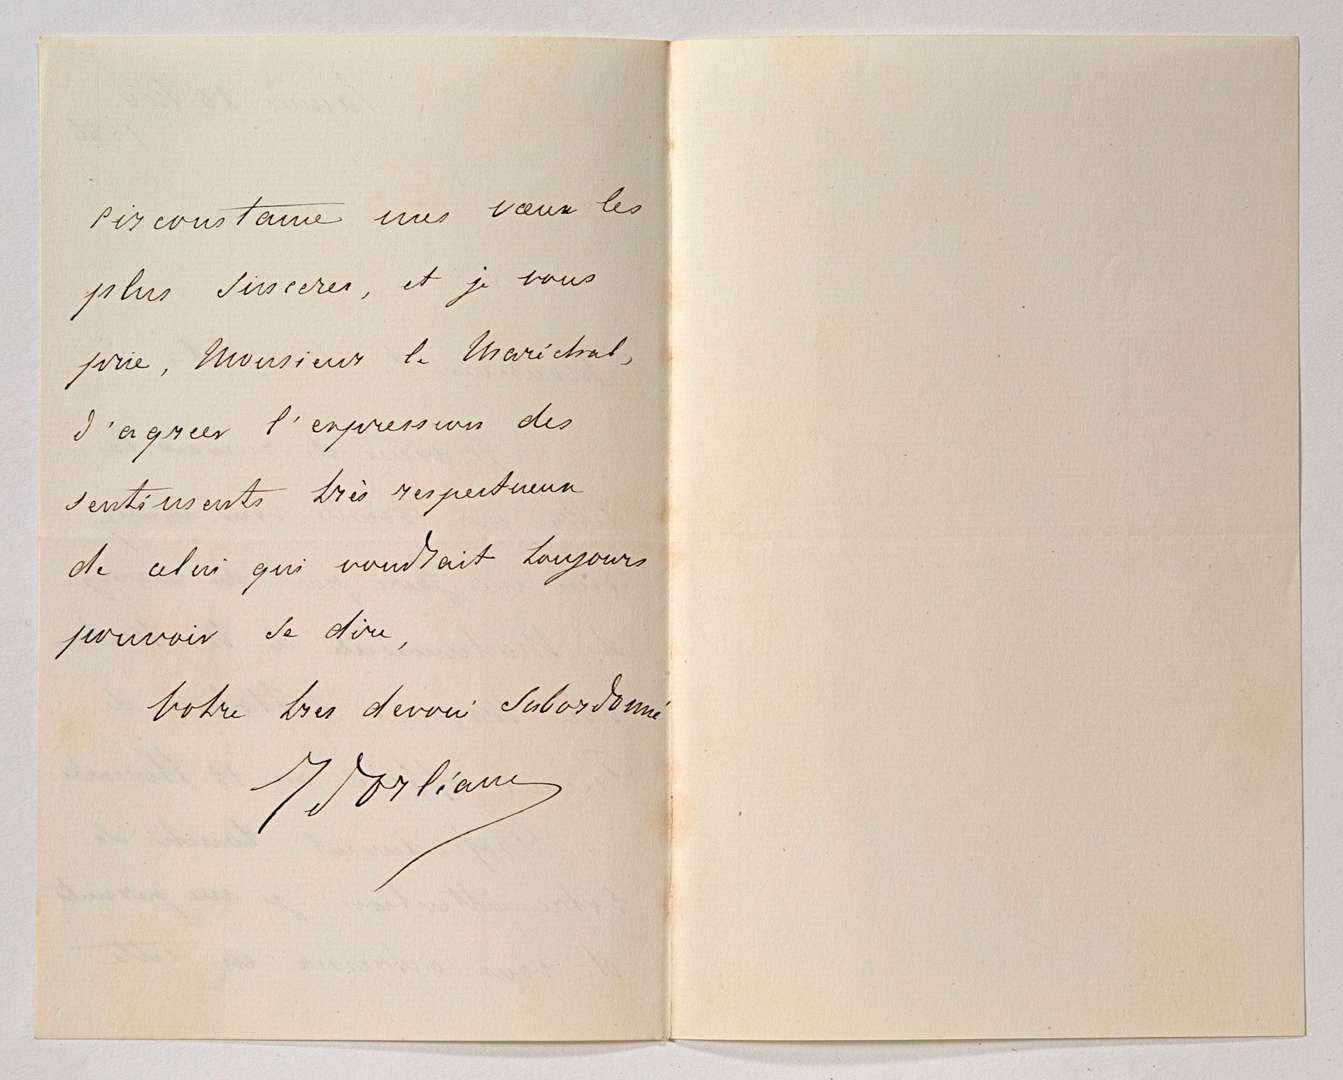 circonstance mes vœux les
plus sinceres, et je vous
prie, Monsieur le Maréchal,
d'agreer l'expression des
sentiments très respectueux
de celui qui voudrait toujours
pouvoir se dire,
votre tres devoué subordonné
d'Orléans